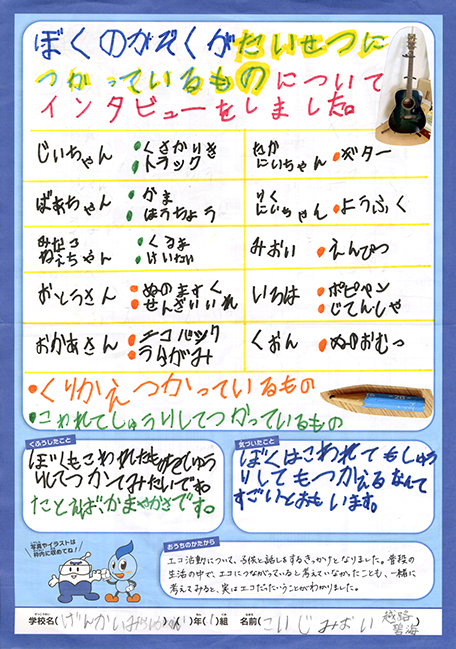 ぼくのかぞくがたいせつに
つかっているものについて
インタビューをしました。
じいちゃん ・くさかりき ・トラック
たかにいちゃん ・ギター
ばあちゃん ・かま ・ほうちょう
りくにいちゃん ・ようふく
みなこねえちゃん ・くるま ・けいたい
みおい ・えんぴつ
おとうさん ・ぬのますく ・せんざいいれ
いろは ・ポピペン ・じてんしゃ
おかあさん ・エコバック ・うらがみ
くおん ・ぬのおむつ
・くりかえしつかっているもの
・こわれてしゅうりしてつかっているもの
くふうしたこと
ぼくもこわれたものをしゅう
りしてつかってみたいですね
たとえば、かまやかさです。
気づいたこと
ぼくはこわれてもしゅう
りしてもつかえるなんて
すごいとおもいます。
写真やイラストは
枠内に収めてね!
おうちのかたから
エコ活動について、子供と話しをするきっかけとなりました。普段の
生活の中で、エコにつながっていると考えていなかったことも、一緒に
考えてみると、実はエコだったということがわかりました。
学校名(げんかいみらいがくえん)(1)年(1)組 名前(こいじみおい 越路碧海)